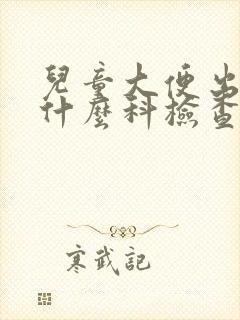 兒童大便出
什麼科檢查
寒武記